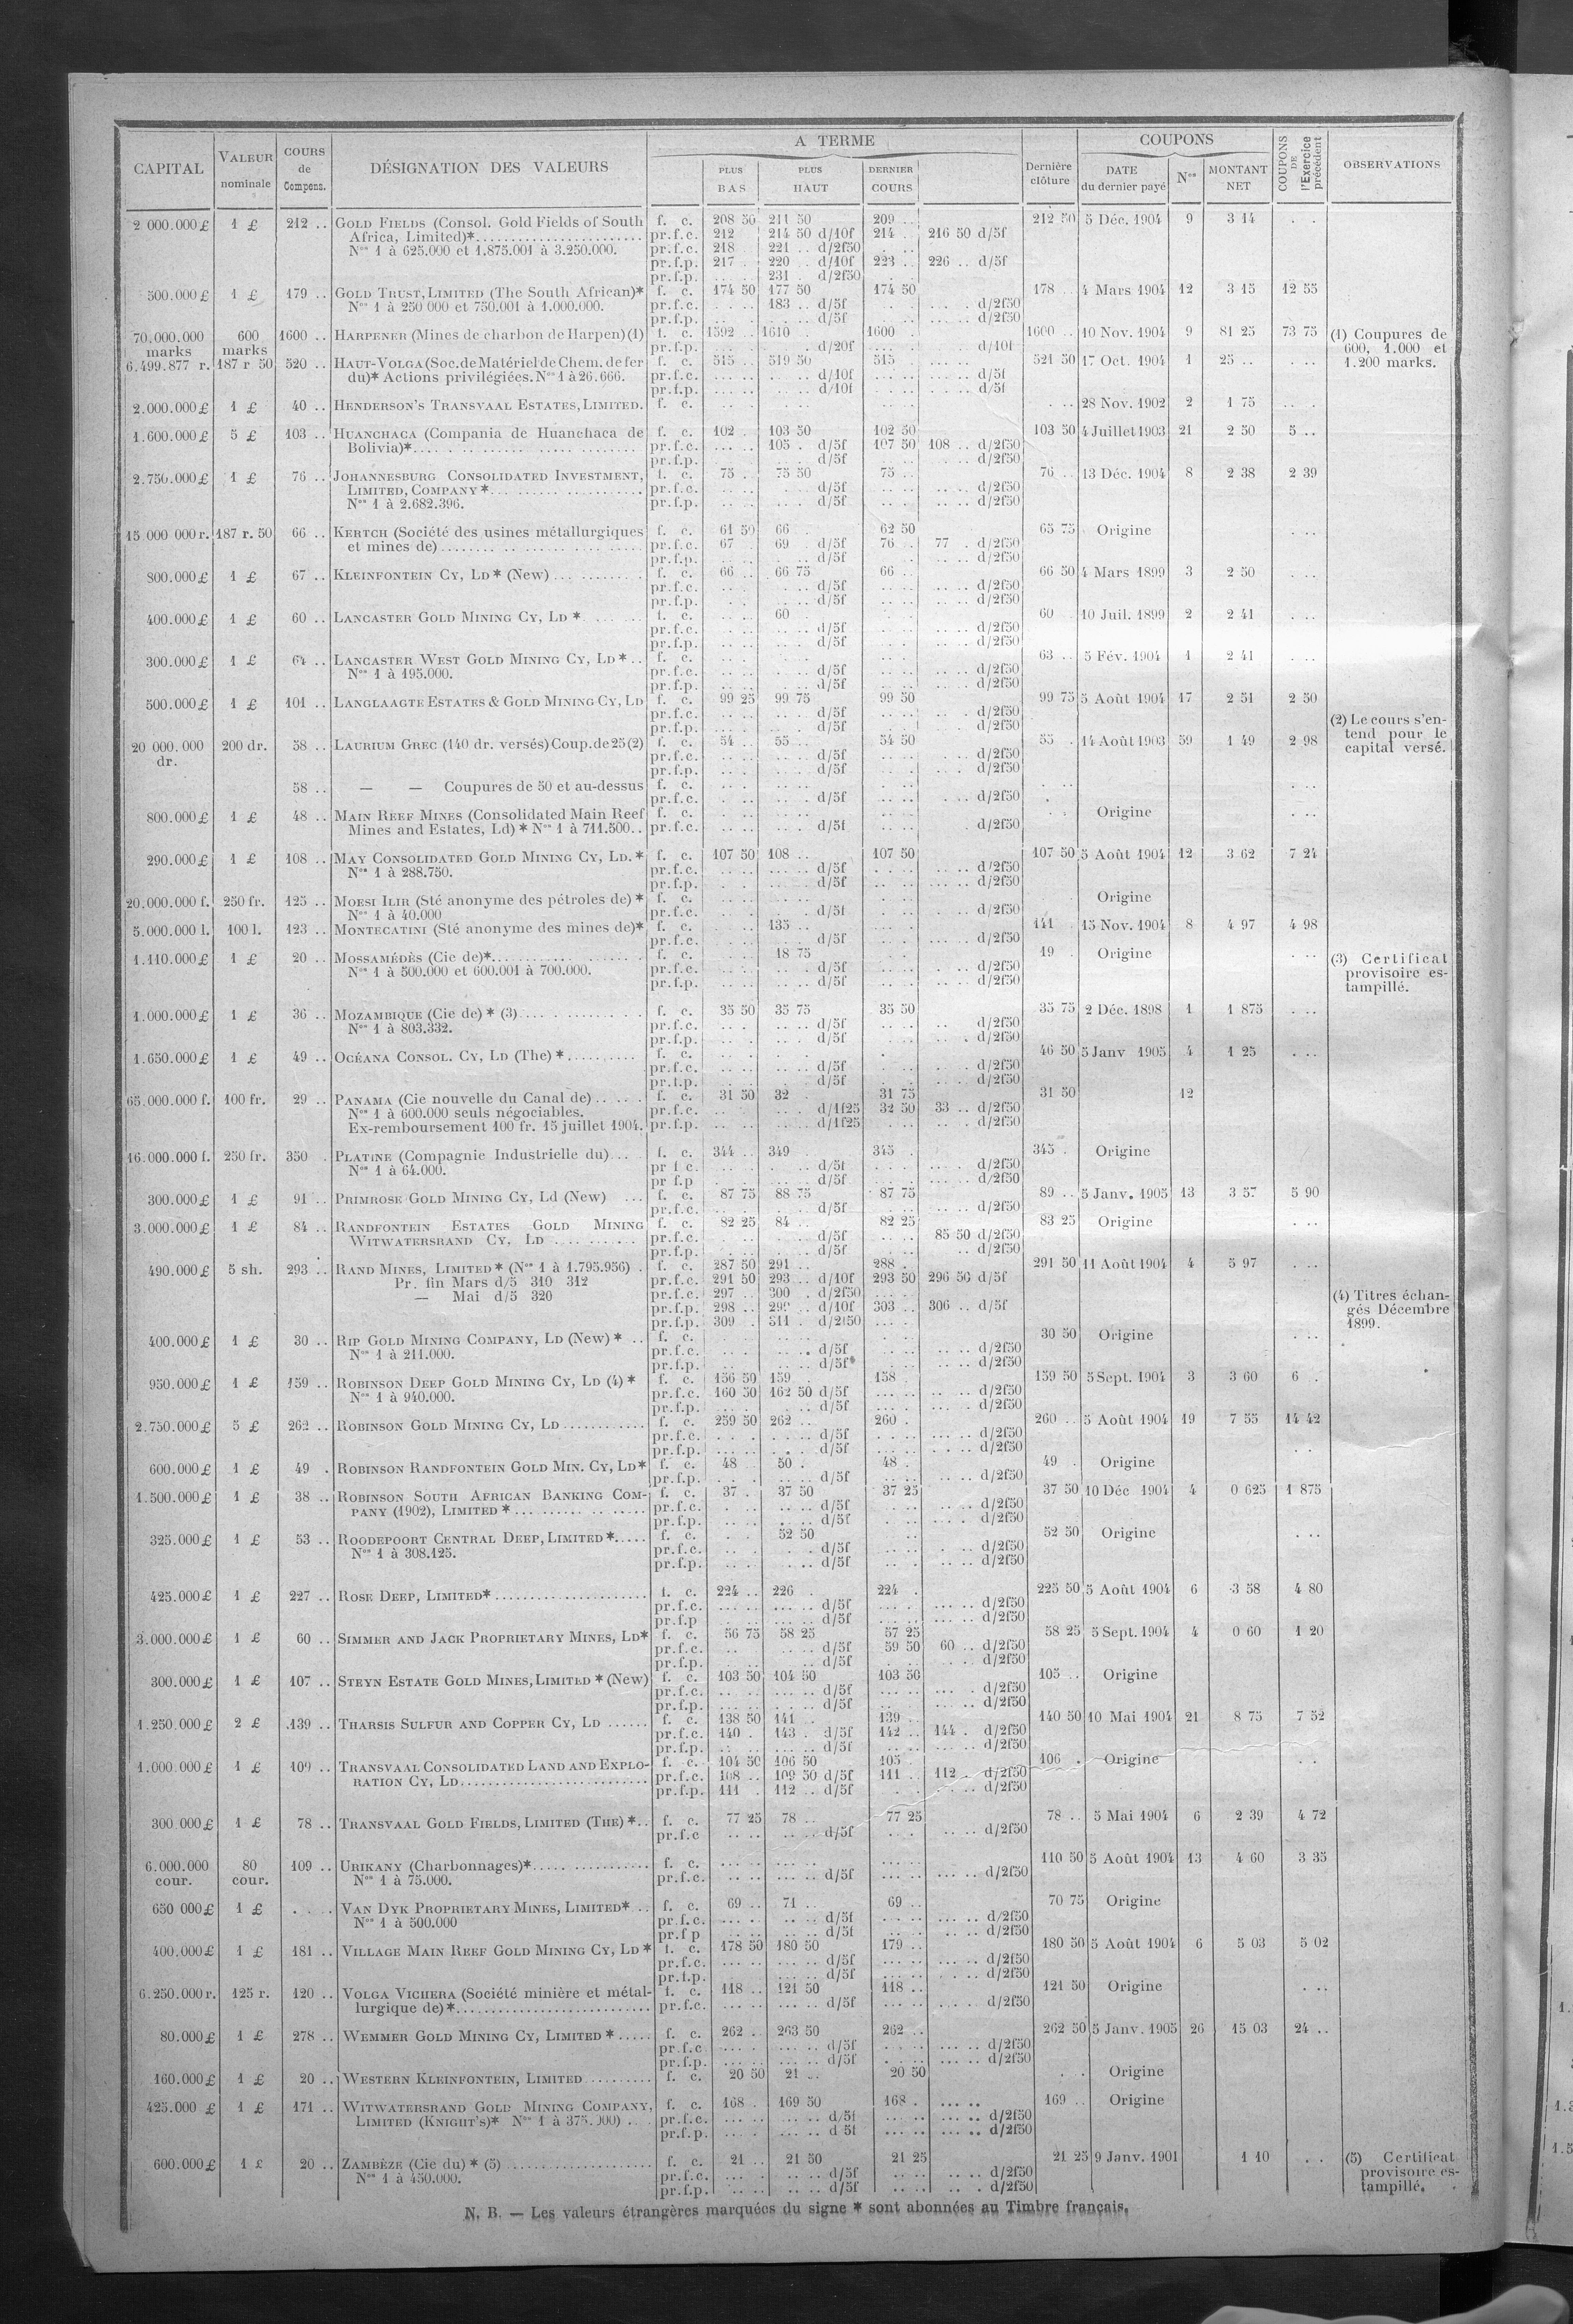 CAPITAL
VALEUR nominale
COURS de Compens.
DÉSIGNATION DES VALEURS
A TERME
PLUS BAS
PLUS HAUT
DERNIER COURS
Dernière clôture
COUPONS
DATE du dernier payé
Nos
MONTANT NET
COUPONS DE l'Exercice précédent
OBSERVATIONS
2 000.000 £ 1 £ 212 .. GOLD FIELDS (Consol. Gold Fields of South f. c. 208 50 211 50 209 .. 212 50 5 Déc. 1904 9 3 14
Africa, Limited)* pr.f.c. 212 214 50 d/10f 214 216 50 d/5f
Nos 1 à 625.000 et 1.875.001 à 3.250.000. pr.f.c. 218 221 .. d/2f50
pr.f.p. 217 220 d/10f 223 .. 226 .. d/5f
pr.f.p. 231 d/2f50
500.000 £ 1 £ 179 .. GOLD TRUST, LIMITED (The South African)* f. c. 174 50 177 50 174 50 178 .. 4 Mars 1904 12 3 15 12 55
Nos 1 à 250 000 et 750.001 à 1.000.000. pr.f.c. 183 .. d/5f d/2f50
pr.f.p. d/5f d/2f50
70.000.000 marks 600 marks 1600 .. HARPENER (Mines de charbon de Harpen) (1) f. c. 1592 .. 1610 1600 1600 .. 10 Nov. 1904 9 81 25 73 75 (1) Coupures de
pr.f.p. d/20f d/10f 600, 1.000 et
6.499.877 r. 187 r 50 520 .. HAUT-VOLGA (Soc. de Matériel de Chem. de fer f. c. 515 519 50 515 521 50 17 Oct. 1904 1 25 .. 1.200 marks.
du)* Actions privilégiées. Nos 1 à 26.666. pr.f.c. d/10f d/5f
pr.f.p. d/10f d/5f
2.000.000 £ 1 £ 40 .. HENDERSON'S TRANSVAAL ESTATES, LIMITED. f. c. 28 Nov. 1902 2 1 75
1.600.000 £ 5 £ 103 .. HUANCHACA (Compania de Huanchaca de f. c. 102 103 50 102 50 103 50 4 Juillet 1903 21 2 50 5 ..
Bolivia)* pr.f.c. 105 d/5f 107 50 108 .. d/2f50
pr.f.p. d/5f d/2f50
2.750.000 £ 1 £ 76 .. JOHANNESBURG CONSOLIDATED INVESTMENT, f. c. 75 75 50 75 76 .. 13 Déc. 1904 8 2 38 2 39
LIMITED, COMPANY * pr.f.c. d/5f d/2f50
Nos 1 à 2.682.396. pr.f.p. d/5f d/2f50
15 000 000 r. 187 r. 50 66 .. KERTCH (Société des usines métallurgiques f. c. 61 50 66 62 50 65 75 Origine
et mines de) pr.f.c. 67 69 d/5f 76 77 d/2f50
pr.f.p. d/5f d/2f50
800.000 £ 1 £ 67 .. KLEINFONTEIN CY, LD * (New) f. c. 66 66 75 66 66 50 4 Mars 1899 3 2 50
pr.f.c. d/5f d/2f50
pr.f.p. d/5f d/2f50
400.000 £ 1 £ 60 .. LANCASTER GOLD MINING CY, LD * f. c. 60 60 10 Juil. 1899 2 2 41
pr.f.c. d/5f d/2f50
pr.f.p. d/5f d/2f50
300.000 £ 1 £ 64 .. LANCASTER WEST GOLD MINING CY, LD * f. c. 63 .. 5 Fév. 1904 1 2 41
Nos 1 à 195.000. pr.f.c. d/5f d/2f50
pr.f.p. d/5f d/2f50
500.000 £ 1 £ 101 .. LANGLAAGTE ESTATES & GOLD MINING CY, LD f. c. 99 25 99 75 99 50 99 75 5 Août 1904 17 2 51 2 50
pr.f.c. d/5f d/2f50 (2) Le cours s'en-
pr.f.p. d/5f d/2f50 tend pour le
20 000.000 dr. 200 dr. 58 .. LAURIUM GREC (140 dr. versés) Coup. de 25 (2) f. c. 54 55 54 50 55 14 Août 1903 59 1 49 2 98 capital versé.
pr.f.c. d/5f d/2f50
pr.f.p. d/5f d/2f50
58 .. — — Coupures de 50 et au-dessus f. c.
pr.f.c. d/5f d/2f50
800.000 £ 1 £ 48 .. MAIN REEF MINES (Consolidated Main Reef f. c. Origine
Mines and Estates, Ld) * Nos 1 à 711.500. pr.f.c. d/5f d/2f50
290.000 £ 1 £ 108 .. MAY CONSOLIDATED GOLD MINING CY, LD. * f. c. 107 50 108 .. 107 50 107 50 5 Août 1904 12 3 62 7 24
Nos 1 à 288.750. pr.f.c. d/5f d/2f50
pr.f.p. d/5f d/2f50
20.000.000 f. 250 fr. 125 .. MOESI ILIR (Sté anonyme des pétroles de) * f. c. Origine
Nos 1 à 40.000 pr.f.c. d/5f d/2f50
5.000.000 l. 100 l. 123 .. MONTECATINI (Sté anonyme des mines de)* f. c. 135 141 15 Nov. 1904 8 4 97 4 98
pr.f.c. d/5f d/2f50
1.110.000 £ 1 £ 20 .. MOSSAMÉDÈS (Cie de)* f. c. 18 75 19 Origine (3) Certificat
Nos 1 à 500.000 et 600.001 à 700.000. pr.f.c. d/5f d/2f50 provisoire es-
pr.f.p. d/5f d/2f50 tampillé.
1.000.000 £ 1 £ 36 .. MOZAMBIQUE (Cie de) * (3) f. c. 35 50 35 75 35 50 35 75 2 Déc. 1898 1 1 875
Nos 1 à 803.332. pr.f.c. d/5f d/2f50
pr.f.p. d/5f d/2f50
1.650.000 £ 1 £ 49 .. OCÉANA CONSOL. CY, LD (The) * f. c. 46 50 5 Janv 1905 4 1 25
pr.f.c. d/5f d/2f50
pr.f.p. d/5f d/2f50
65.000.000 f. 100 fr. 29 .. PANAMA (Cie nouvelle du Canal de) f. c. 31 50 32 31 75 31 50 12
Nos 1 à 600.000 seuls négociables. pr.f.c. d/1f25 32 50 33 .. d/2f50
Ex-remboursement 100 fr. 15 juillet 1904. pr.f.p. d/1f25 d/2f50
16.000.000 f. 250 fr. 350 PLATINE (Compagnie Industrielle du) f. c. 344 349 345 345 Origine
Nos 1 à 64.000. pr f c. d/5f d/2f50
pr f.p d/5f d/2f50
300.000 £ 1 £ 91 .. PRIMROSE GOLD MINING CY, Ld (New) f. c. 87 75 88 75 87 75 89 .. 5 Janv. 1905 13 3 57 5 90
pr.f.c. d/5f d/2f50
3.000.000 £ 1 £ 84 .. RANDFONTEIN ESTATES GOLD MINING f. c. 82 25 84 82 25 83 25 Origine
WITWATERSRAND CY. LD pr.f.c. d/5f 85 50 d/2f50
pr.f.p. d/5f d/2f50
490.000 £ 5 sh. 293 .. RAND MINES, LIMITED * (Nos 1 à 1.795.956) f. c. 287 50 291 288 291 50 11 Août 1904 4 5 97
Pr. fin Mars d/5 310 312 pr.f.c. 291 50 293 .. d/10f 293 50 296 50 d/5f
— Mai d/5 320 pr.f.c. 297 .. 300 d/2f50 (4) Titres échan-
pr.f.p. 298 .. d/10f 303 306 .. d/5f gés Décembre
pr.f.p. 309 311 d/2f50 1899.
400.000 £ 1 £ 30 .. RIP GOLD MINING COMPANY, LD (New) * f. c. 30 50 Origine
Nos 1 à 211.000. pr.f.c. d/5f d/2f50
pr.f.p. d/5f d/2f50
950.000 £ 1 £ 159 .. ROBINSON DEEP GOLD MINING CY, LD (4) * f. c. 156 50 159 158 159 50 5 Sept. 1904 3 3 60 6
Nos 1 à 940.000. pr.f.c. 160 50 162 50 d/5f d/2f50
pr.f.p. d/5f d/2f50
2.750.000 £ 5 £ 262 .. ROBINSON GOLD MINING CY, LD f. c. 259 50 262 260 260 .. 5 Août 1904 19 7 55 14 42
pr.f.c. d/5f d/2f50
pr.f.p. d/5f d/2f50
600.000 £ 1 £ 49 ROBINSON RANDFONTEIN GOLD MIN. CY, LD* f. c. 48 50 48 49 Origine
pr.f.p. d/5f d/2f50
1.500.000 £ 1 £ 38 .. ROBINSON SOUTH AFRICAN BANKING COM- f. c. 37 37 50 37 25 37 50 10 Déc 1904 4 0 625 1 875
PANY (1902), LIMITED * pr.f.c. d/5f d/2f50
pr.f.p. d/5f d/2f50
325.000 £ 1 £ 53 .. ROODEPOORT CENTRAL DEEP, LIMITED * f. c. 52 50 52 50 Origine
Nos 1 à 308.125. pr.f.c. d/5f d/2f50
pr.f.p. d/5f d/2f50
425.000 £ 1 £ 227 .. ROSE DEEP, LIMITED* f. c. 224 .. 226 224 225 50 5 Août 1904 6 3 58 4 80
pr.f.c. d/5f d/2f50
pr.f.p d/5f d/2f50
3.000.000 £ 1 £ 60 .. SIMMER AND JACK PROPRIETARY MINES, LD* f. c. 56 75 58 25 57 25 58 25 5 Sept. 1904 4 0 60 1 20
pr.f.c. d/5f 59 50 60 .. d/2f50
pr.f.p. d/5f d/2f50
300.000 £ 1 £ 107 .. STEYN ESTATE GOLD MINES, LIMITED * (New) f. c. 103 50 104 50 103 50 105 .. Origine
pr.f.c. d/5f d/2f50
pr.f.p. d/5f d/2f50
1.250.000 £ 2 £ 139 .. THARSIS SULFUR AND COPPER CY, LD f. c. 138 50 141 139 140 50 10 Mai 1904 21 8 75 7 52
pr.f.c. 140 143 d/5f 142 144 d/2f50
pr.f.p. d/5f d/2f50
1.000.000 £ 1 £ 109 .. TRANSVAAL CONSOLIDATED LAND AND EXPLO- f. c. 104 50 106 50 105 106 Origine
RATION CY, LD pr.f.c. 108 .. 109 50 d/5f 111 112 d/2f50
pr.f.p. 111 112 d/5f d/2f50
300.000 £ 1 £ 78 .. TRANSVAAL GOLD FIELDS, LIMITED (THE) * f. c. 77 25 78 .. 77 25 78 .. 5 Mai 1904 6 2 39 4 72
pr.f.c d/5f d/2f50
6.000.000 cour. 80 cour. 109 .. URIKANY (Charbonnages)* f. c. 110 50 5 Août 1904 13 4 60 3 35
Nos 1 à 75.000. pr.f.c. d/5f d/2f50
650 000 £ 1 £ VAN DYK PROPRIETARY MINES, LIMITED* f. c. 69 71 69 70 75 Origine
Nos 1 à 500.000 pr.f.c. d/5f d/2f50
pr.f p d/5f d/2f50
400.000 £ 1 £ 181 .. VILLAGE MAIN REEF GOLD MINING CY, LD * f. c. 178 50 180 50 179 180 50 5 Août 1904 6 5 03 5 02
pr.f.c. d/5f d/2f50
pr.f.p. d/5f d/2f50
6.250.000 r. 125 r. 120 .. VOLGA VICHERA (Société minière et métal- f. c. 118 121 50 118 121 50 Origine
lurgique de)* pr.f.c. d/5f d/2f50
80.000 £ 1 £ 278 .. WEMMER GOLD MINING CY, LIMITED * f. c. 262 263 50 262 262 50 5 Janv. 1905 26 15 03 24 ..
pr.f.c d/5f d/2f50
pr.f.p. d/5f d/2f50
160.000 £ 1 £ 20 .. WESTERN KLEINFONTEIN, LIMITED f. c. 20 50 21 20 50 Origine
425.000 £ 1 £ 171 .. WITWATERSRAND GOLD MINING COMPANY, f. c. 168 169 50 168 169 .. Origine
LIMITED (KNIGHT'S)* Nos 1 à 375.000) pr.f.c. d/5f d/2f50
pr.f.p. d 5f d/2f50
600.000 £ 1 £ 20 .. ZAMBÈZE (Cie du) * (5) f. c. 21 .. 21 50 21 25 21 25 9 Janv. 1901 1 10 (5) Certificat
Nos 1 à 450.000. pr.f.c. d/5f d/2f50 provisoire es-
pr.f.p. d/5f d/2f50 tampillé.
N. B. — Les valeurs étrangères marquées du signe * sont abonnées au Timbre français.